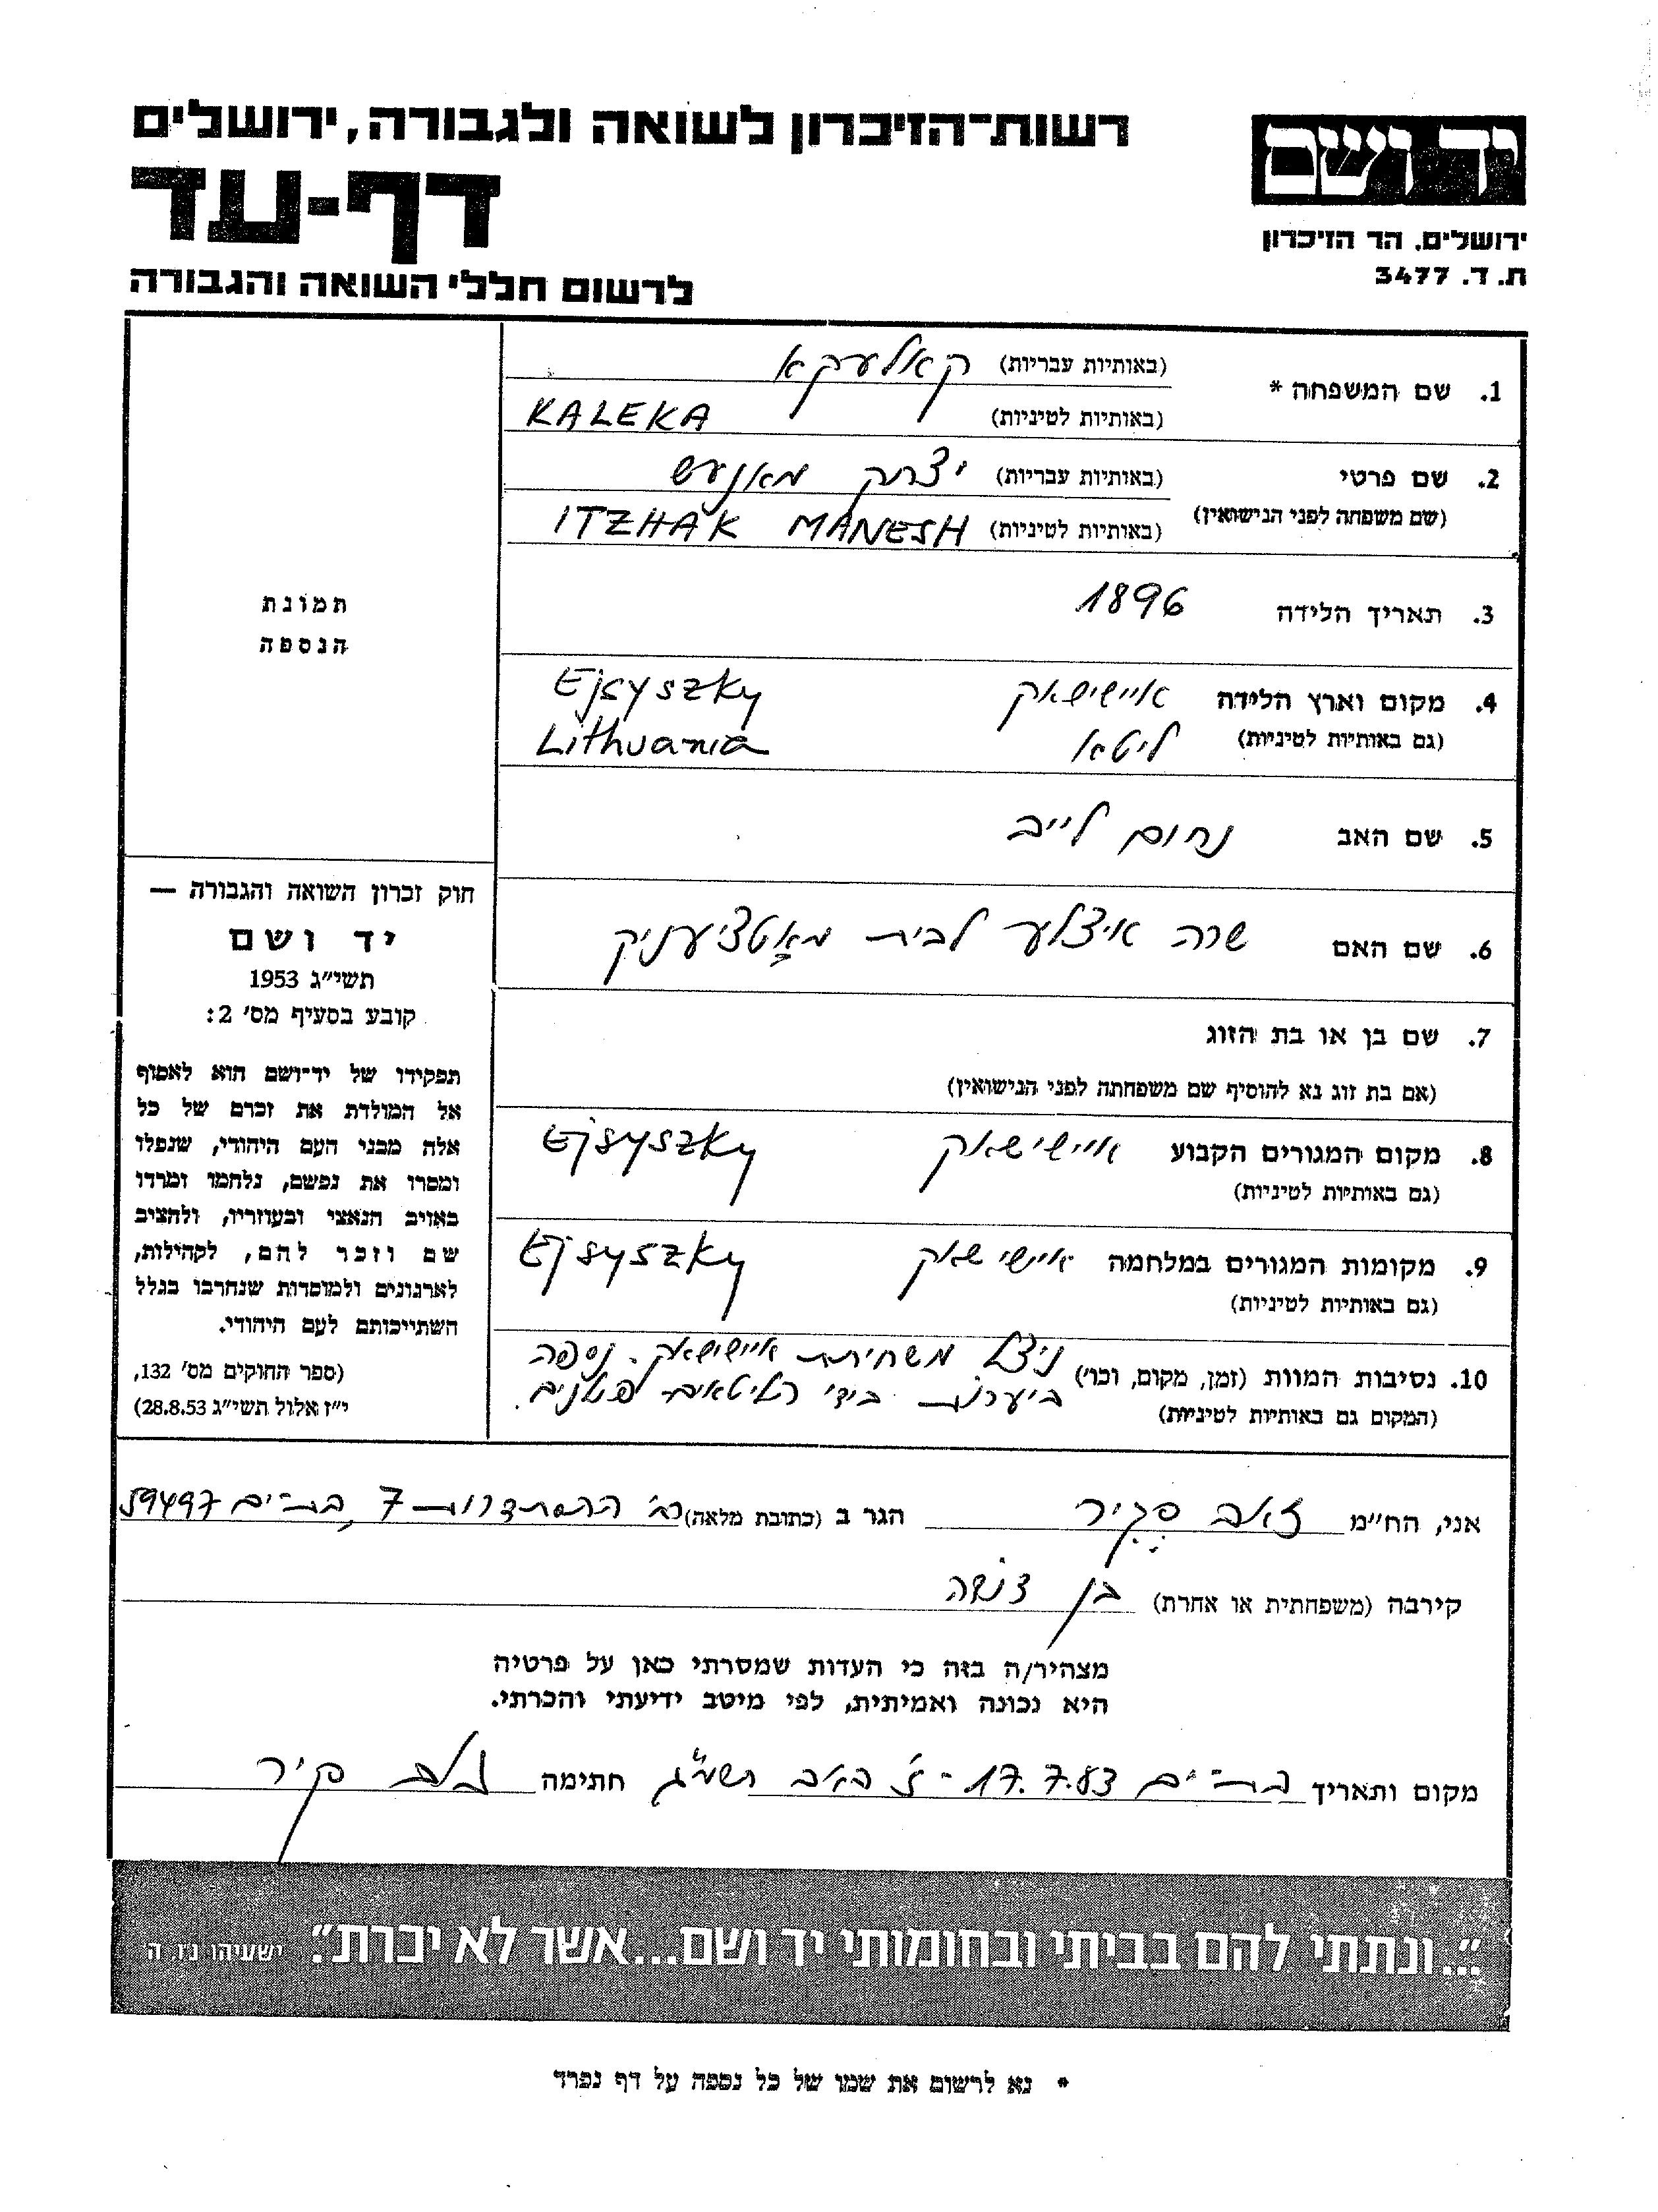 רשות-הזיכרון לשואה ולגבורה, ירושלים
דף-עד
לרשום חללי השואה והגבורה
יד ושם
ירושלים, הר הזיכרון
ת.ד. 3477
1. שם המשפחה * (באותיות עבריות) קאלעקא
(באותיות לטיניות) KALEKA
2. שם פרטי (באותיות עבריות) יצחק מאנעש
(שם משפחה לפני הנישואין) (באותיות לטיניות) ITZHAK MANESH
3. תאריך הלידה 1896
4. מקום וארץ הלידה אישישאק Ejsyszky
(גם באותיות לטיניות) ליטא Lithuania
5. שם האב נחום לייב
6. שם האם שרה איצלע לבית מאטציעניק
7. שם בן או בת הזוג
(אם בת זוג נא להוסיף שם משפחתה לפני הנישואין)
8. מקום המגורים הקבוע איישישאק Ejsyszky
(גם באותיות לטיניות)
9. מקומות המגורים במלחמה איישישאק Ejsyszky
(גם באותיות לטיניות)
10. נסיבות המוות (זמן, מקום, וכו') ניצל משחיטת איישישאק. נספה
(המקום גם באותיות לטיניות) ביערות בידי
תמונת
הנספה
חוק זכרון השואה והגבורה —
יד ושם
תשי"ג 1953
קובע בסעיף מס' 2:
תפקידו של יד-ושם הוא לאסוף
אל המולדת את זכרם של כל
אלה מבני העם היהודי, שנפלו
ומסרו את נפשם, נלחמו ומרדו
באויב הנאצי ובעוזריו, ולהציב
שם וזכר להם, לקהילות,
לארגונים ולמוסדות שנחרבו בגלל
השתייכותם לעם היהודי.
(ספר החוקים מס' 132,
י"ז אלול תשי"ג 28.8.53)
אני, הח"מ זאב קיר הגר ב (כתובת מלאה) רח' ההסתדרות 7, בת-ים 59497
קירבה (משפחתית או אחרת) בן
מצהיר/ה בזה כי העדות שמסרתי כאן על פרטיה
היא נכונה ואמיתית, לפי מיטב ידיעתי והכרתי.
מקום ותאריך בת-ים 17.7.83 - ז' באב תשמ"ג חתימה זאב קיר
"...ונתתי להם בביתי ובחומותי יד ושם...אשר לא יכרת". ישעיהו נו, ה
* נא לרשום את שמו של כל נספה על דף נפרד